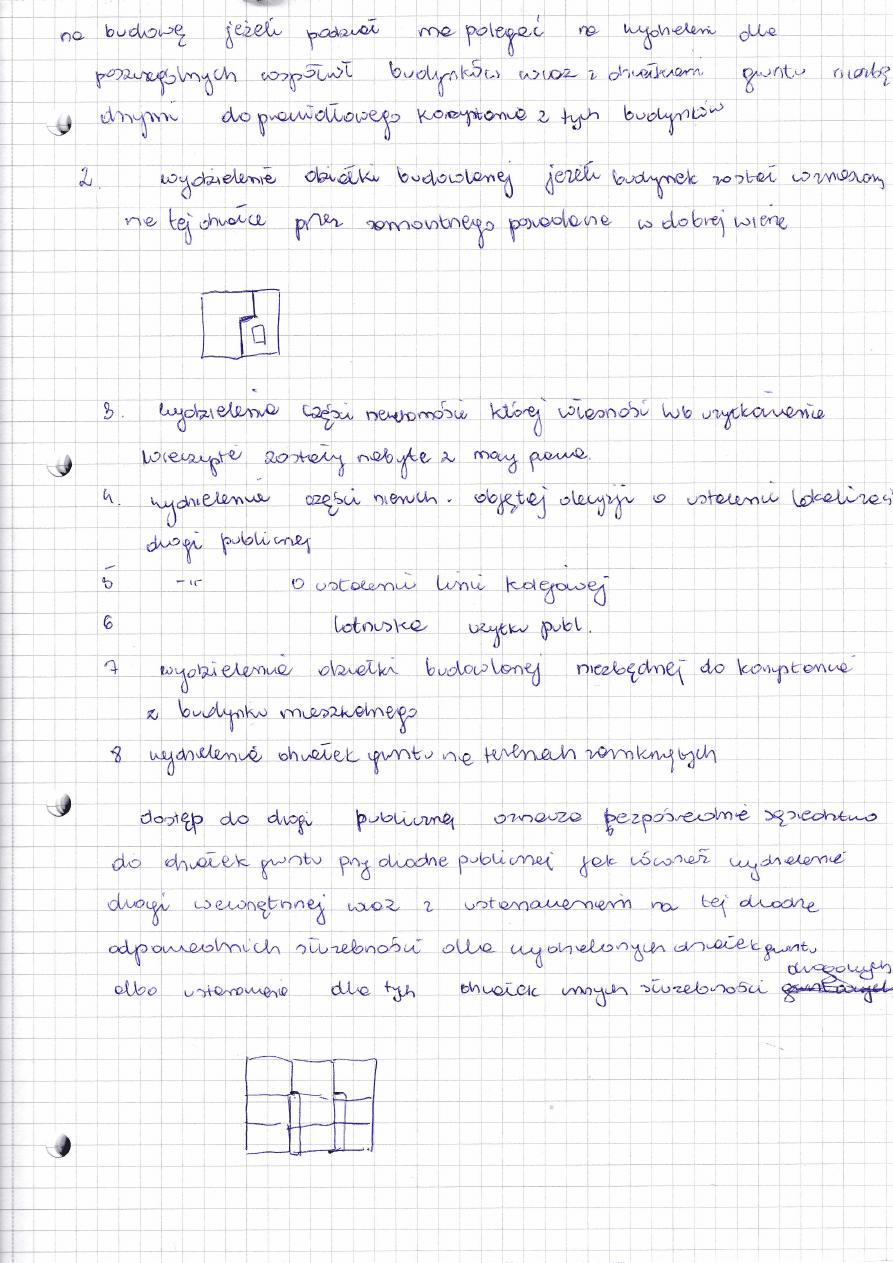 na budowę jeżeli podział ma polegać na wydzieleni dla
poszczególnych współwł budynków wraz z działkami gruntu niezbę
dnymi do prawidłowego korzystania z tych budynków
2. wydzielenie działki budowlanej jeżeli budynek został wzniesiony
na tej działce przez samoistnego posiadacza w dobrej wierze
3. wydzielenia części nieruchomości której własność lub użytkowanie
wieczyste zostały nabyte z mocy prawa.
4. wydzielenia części nieruch. objętej decyzji o ustaleniu lokalizacj
drogi publicznej
5 -"- o ustaleniu linii kolejowej
6 lotniska użytku publ.
7 wydzielenia działki budowlanej niezbędnej do korzystania
z budynku mieszkalnego
8 wydzielenia działek gruntu na terenach zamkniętych
dostęp do drogi publicznej oznacza bezpośrednie sąsiedztwo
do działek gruntu przy drodze publicznej jak również wydzielenie
drogi wewnętrznej wraz z ustanowieniem na tej drodze
odpowiednich służebności dla wydzielonych działek gruntu
albo ustanowienie dla tych działek innych służebności drogowych